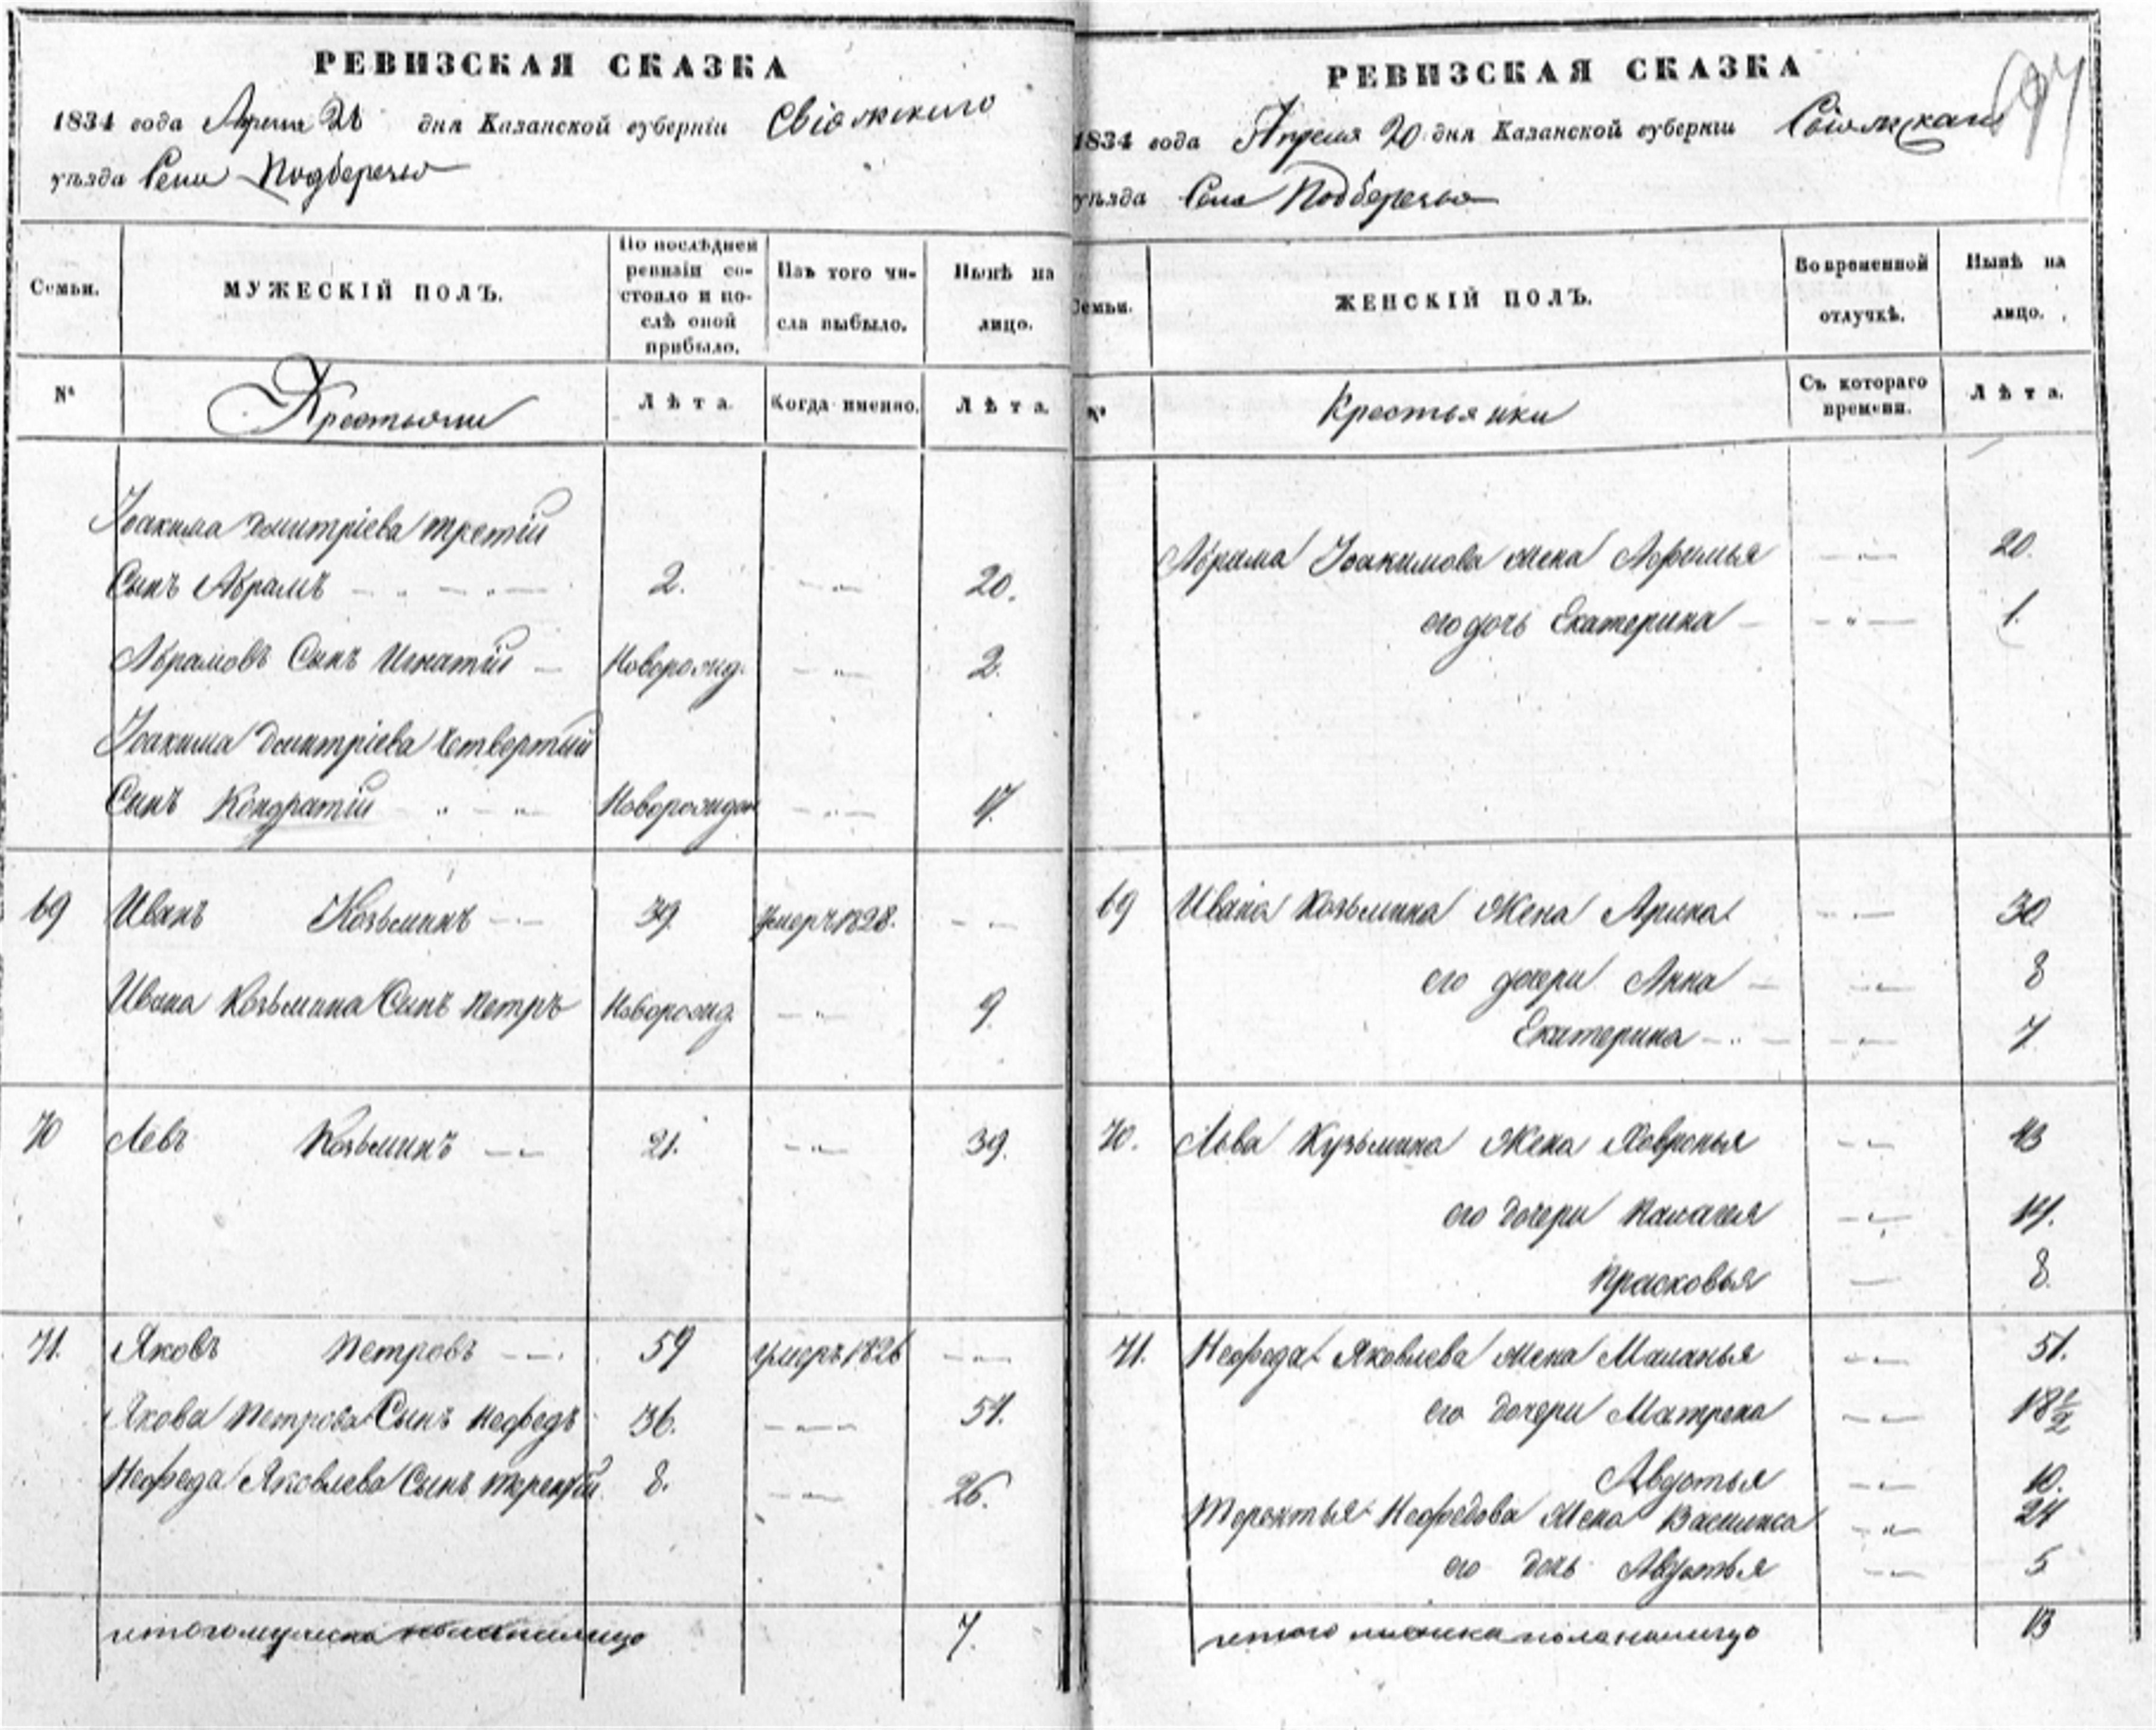 РЕВИЗСКАЯ СКАЗКА
1834 года Апреля 20 дня Казанской губерніи Свіяжскаго
уѣзда Села Подберезья
Семьи.
МУЖЕСКІЙ ПОЛЪ.
По послѣдней
ревизіи со-
стояло и по-
слѣ оной
прибыло.
Изъ того чи-
сла выбыло.
Нынѣ на
лицо.
№
Крестьяни
Лѣта.
Когда именно.
Лѣта.
Іоакима Дмитріева третій
Сынъ Абрамъ 2. 20.
Абрамовъ Сынъ Игнатій Новорожд. 2.
Іоакима Дмитріева Четвертый
Сынъ Кондратій Новорожден 17.
69 Иванъ Козьминъ 39. умеръ 1828.
Ивана Козьмина Сынъ Петръ Новорожд. 9
70 Левъ Козьминъ 21. 39.
71. Яковъ Петровъ 59 умеръ 1826
Якова Петрова Сынъ Нефедъ 36. 54.
Нефеда Яковлева Сынъ 8. 26.
итого мужеска пола на лицо 7.
РЕВИЗСКАЯ СКАЗКА
1834 года Апреля 20 дня Казанской губерніи Свіяжскаго
уѣзда Села Подберезья
Семьи.
ЖЕНСКІЙ ПОЛЪ.
Во временной
отлучкѣ.
Нынѣ на
лицо.
№
Крестьянки
Съ котораго
времени.
Лѣта.
Абрама Іоакимова жена Афимья 20.
его дочь Екатерина 1.
69 Ивана Козьмина Жена Арина 30
его дочери Анна 8
Екатерина 7
70. Льва Кузьмина Жена Хавронья 43
его дочери Паласея 14.
Прасковья 8.
71. Нефеда Яковлева жена Маланья 51.
его дочери Матрена 18½
Авдотья 10.
Терентья Нефедова Жена Василиса 24
его дочь Авдотья 5
итого женска пола на лицо 13